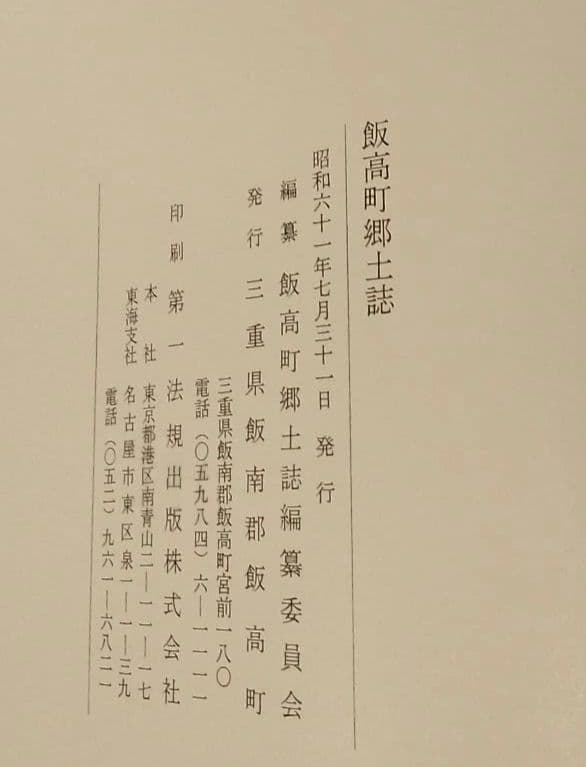 飯高町郷土誌
昭和六十一年七月三十一日 発行
編纂 飯高町郷土誌編纂委員会
発行 三重県飯南郡飯高町
三重県飯南郡飯高町宮前一八〇
電話(〇五九八四)六―一一一一
印刷 第一法規出版株式会社
本社 東京都港区南青山二―一一―一七
東海支社 名古屋市東区泉一―一―三九
電話(〇五二)九六一―六八二一